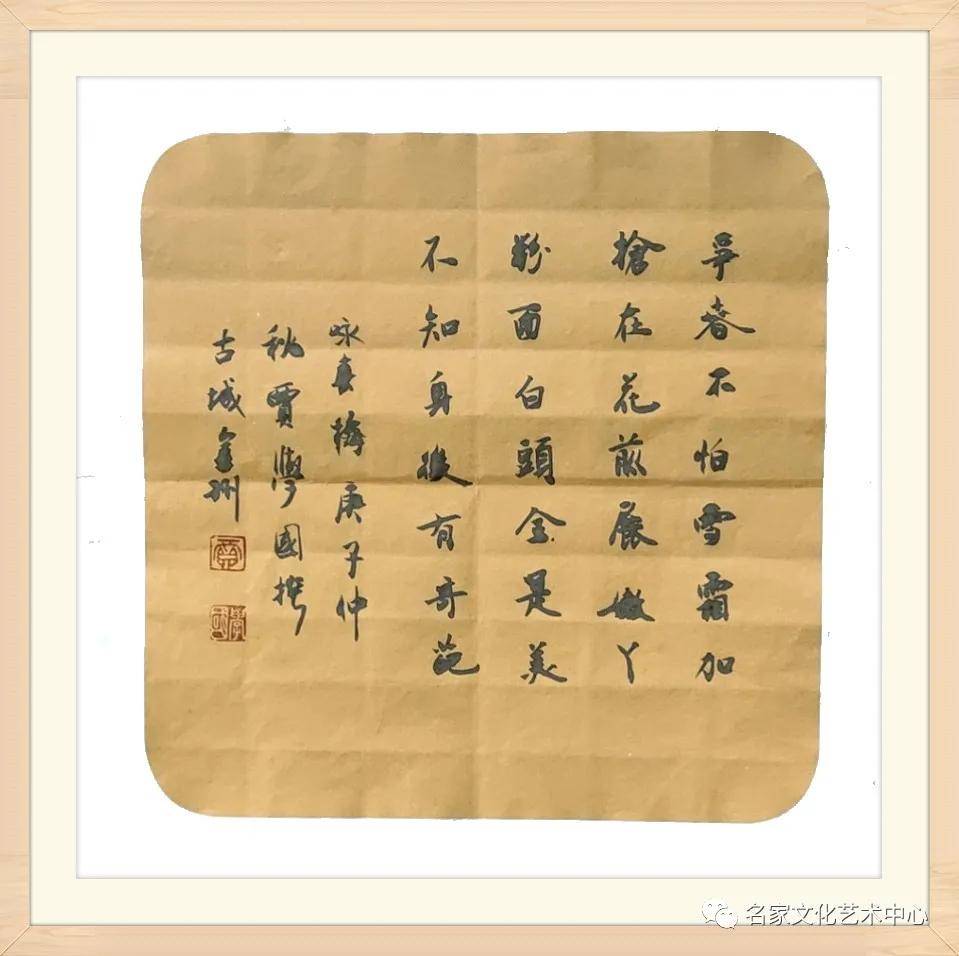 爭春不怕雪霜加
搶在花前展嫩丫
粉面白頭全是美
不知身後有奇葩
咏春梅庚子仲
秋賈學國撰
古城金州
賈
學國
名家文化艺术中心